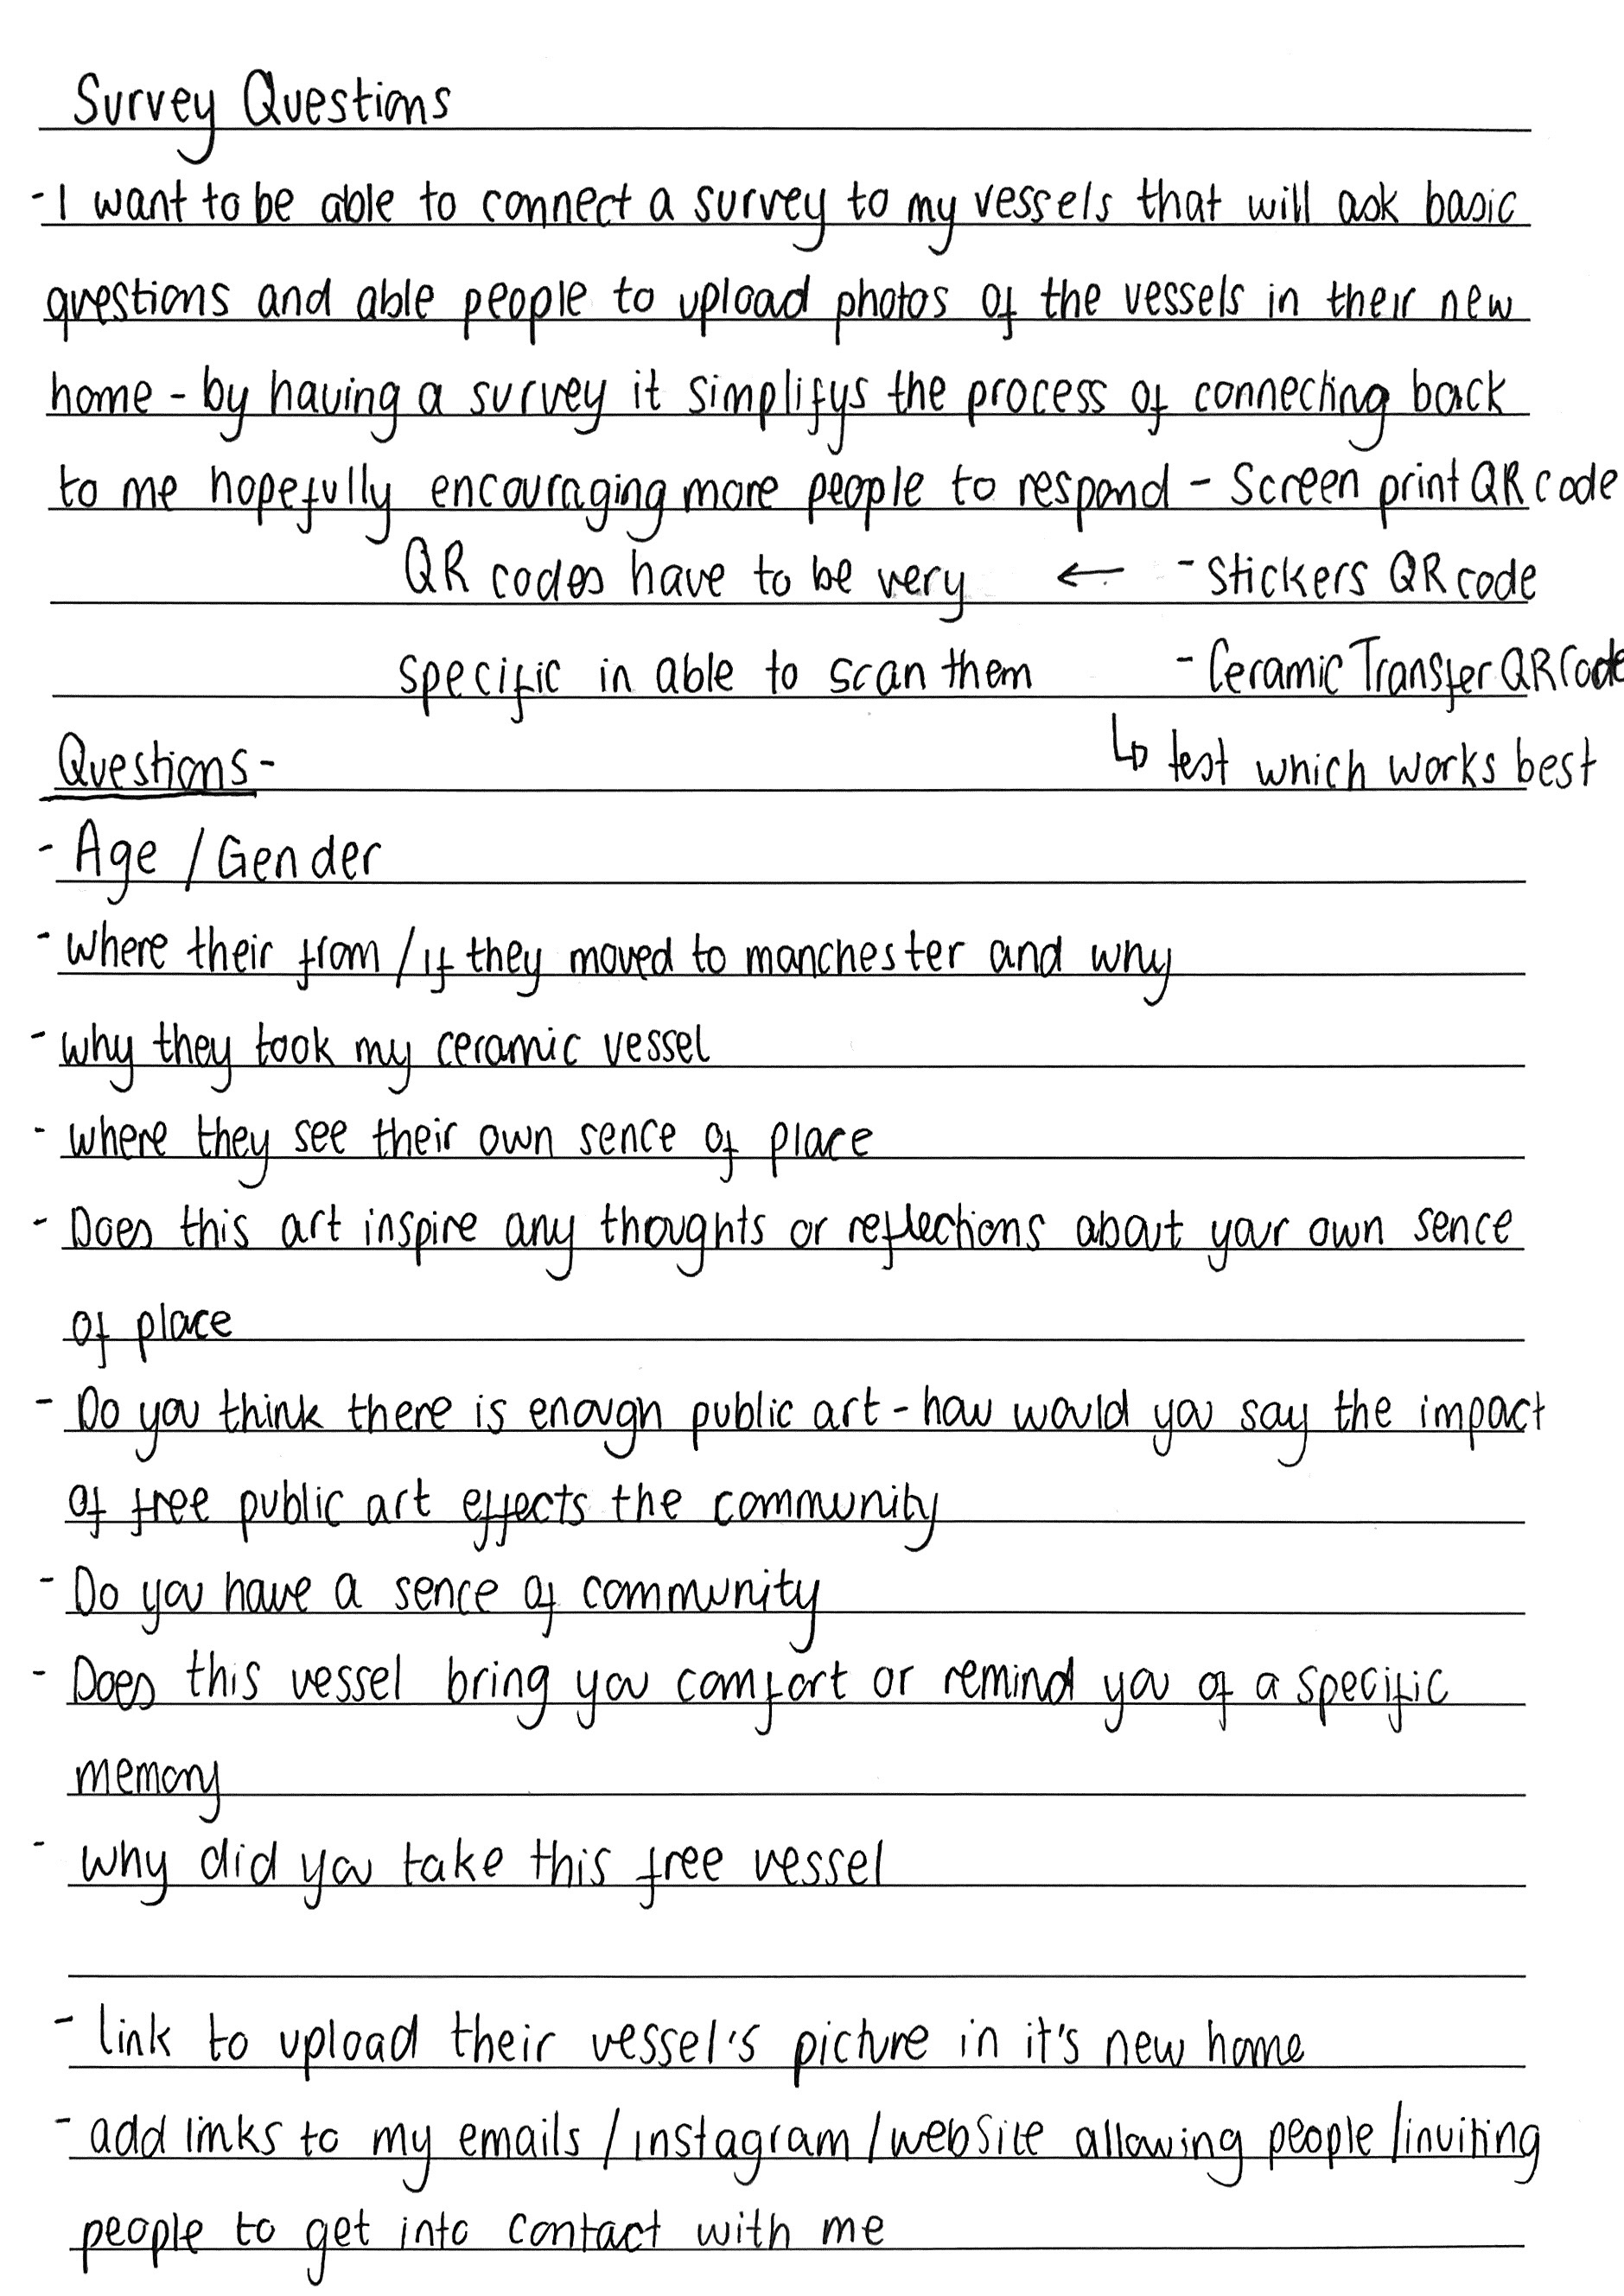 Survey Questions
- I want to be able to connect a survey to my vessels that will ask basic
questions and able people to upload photos of the vessels in their new
home - by having a survey it simplifys the process of connecting back
to me hopefully encouraging more people to respond - Screen print QR code
QR codes have to be very ← - Stickers QR code
specific in able to scan them - Ceramic Transfer QR Code
Questions - ↳ test which works best
- Age / Gender
- where their from / if they moved to manchester and why
- why they took my ceramic vessel
- where they see their own sence of place
- Does this art inspire any thoughts or reflections about your own sence
of place
- Do you think there is enough public art - how would you say the impact
of free public art effects the community
- Do you have a sence of community
- Does this vessel bring you comfort or remind you of a specific
memory
- why did you take this free vessel
- link to upload their vessel's picture in it's new home
- add links to my emails / instagram / website allowing people / inviting
people to get into contact with me